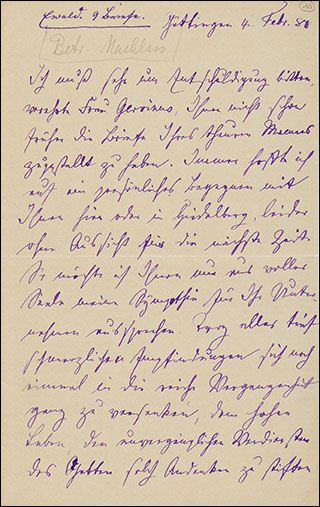 Ewald. 9 Briefe. Göttingen 4. Febr. 80
(Betr. Nachlass)
Ich muß sehr um Entschuldigung bitten,
verehrte Frau Gervinus, Ihnen nicht schon
früher die Briefe Ihres theuren Mannes
zugestellt zu haben. Immer hoffte ich
auf ein persönliches Begegnen mit
Ihnen hier oder in Heidelberg, leider
ohne Aussicht für die nächste Zeit.
So möchte ich Ihnen nur aus voller
Seele meine Sympathie für Ihr Unter-
nehmen aussprechen trotz alles tief
schmerzlichen Empfindungen sich noch
einmal in die reiche Vergangenheit
ganz zu versenken, dem hohen
Leben den unvergänglichen Verdiensten
des Gatten solch Andenken zu stiften